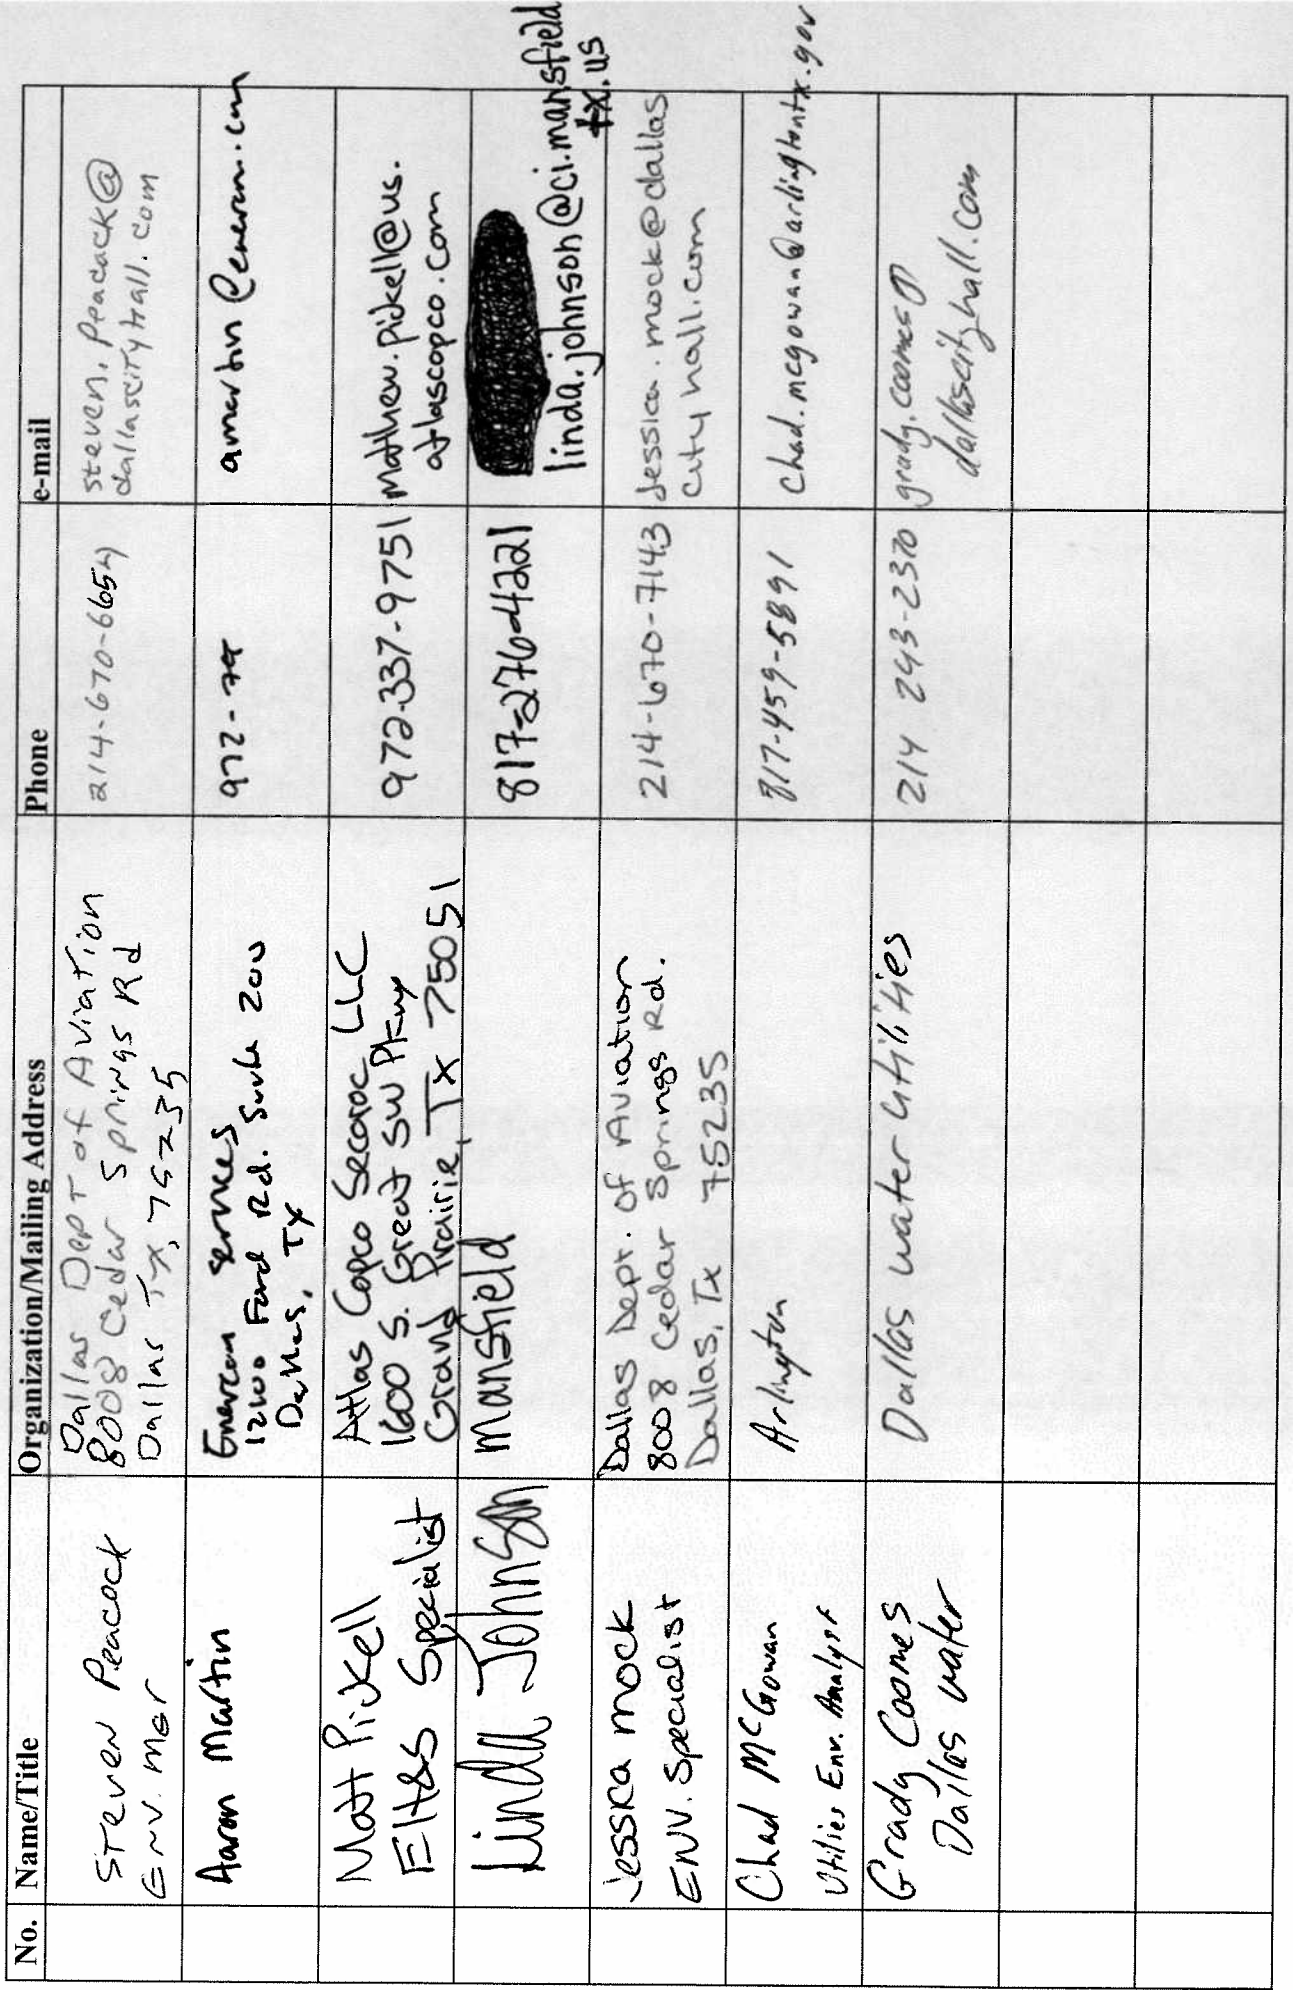 No. Name/Title Organization/Mailing Address Phone e-mail
Steven Peacock
Env. Mgr
Dallas Dept of Aviation
8008 Cedar Springs Rd
Dallas Tx, 75235
214-670-6654
steven.peacock@
dallascityhall.com
Aaron Martin
Services
Ford Rd. Suite 200
Dallas, TX
972-
Matt Pickell
EH&S Specialist
Atlas Copco Secoroc LLC
1600 S. Great SW Pkwy
Grand Prairie, TX 75051
972-337-9751
matthew.pickell@us.
atlascopco.com
Linda Johnson
Mansfield
817-276-4221
linda.johnson@ci.mansfield
tx.us
Jessica Mock
Env. Specialist
Dallas Dept. of Aviation
8008 Cedar Springs Rd.
Dallas, Tx 75235
214-670-7143
Jessica.mock@dallas
cityhall.com
Chad McGowan
Utilies Env. Analyst
Arlington
817-459-5891
chad.mcgowan@arlingtontx.gov
Grady Coomes
Dallas water
Dallas water utilities
214 243-2370
grady.coomes@
dallascityhall.com